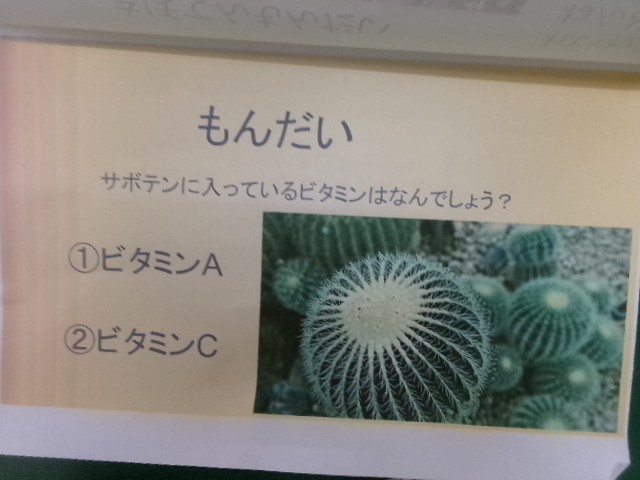 もんだい
サボテンに入っているビタミンはなんでしょう?
①ビタミンA
②ビタミンC